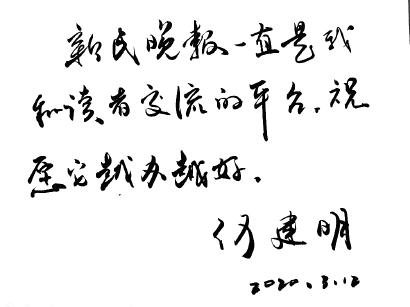 新民晚报一直是我
和读者交流的平台，祝
愿它越办越好。
何建明
2020.3.12